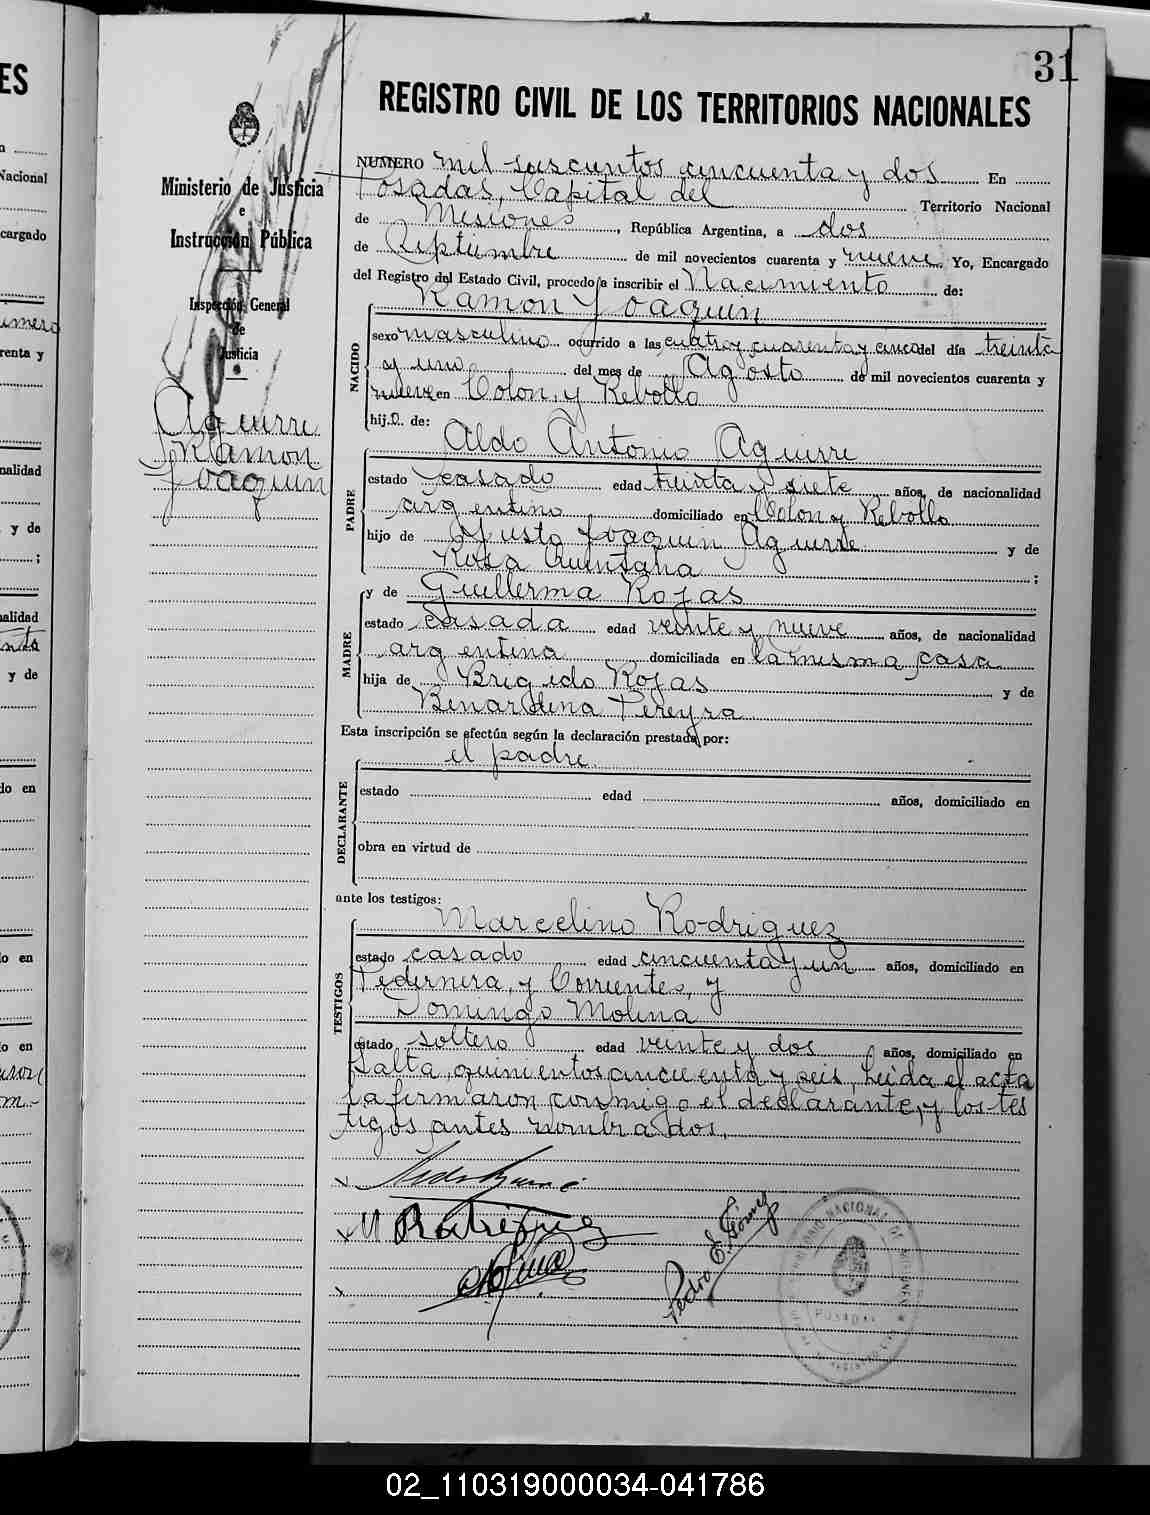 31
REGISTRO CIVIL DE LOS TERRITORIOS NACIONALES
Ministerio de Justicia
e
Instrucción Pública
Inspección General
de
Justicia
Aguirre
Ramon
Joaquin
NUMERO mil seiscientos cincuenta y dos En
Posadas, Capital del Territorio Nacional
de Misiones, República Argentina, a dos
de Septiembre de mil novecientos cuarenta y nueve. Yo, Encargado
del Registro del Estado Civil, procedo a inscribir el Nacimiento de:
Ramon Joaquin
NACIDO
sexo masculino ocurrido a las cuatro y cuarenta y cinco del día treinta
y uno del mes de Agosto de mil novecientos cuarenta y
nueve en Colon, y Rebollo
hij.o. de:
Aldo Antonio Aguirre
PADRE
estado casado edad treinta y siete años, de nacionalidad
argentino domiciliado en Colon y Rebollo
hijo de Justo Joaquin Aguirre y de
Rosa Quintana ;
y de Guillerma Rojas
MADRE
estado casada edad veinte y nueve años, de nacionalidad
argentina domiciliada en la misma casa
hija de Brigido Rojas y de
Benardina Pereyra
Esta inscripción se efectúa según la declaración prestada por:
el padre.
DECLARANTE
estado edad años, domiciliado en
obra en virtud de
ante los testigos:
Marcelino Rodriguez
TESTIGOS
estado casado edad cincuenta y un años, domiciliado en
Pedernera, y Corrientes, y
Domingo Molina
estado soltero edad veinte y dos años, domiciliado en
Salta, quinientos cincuenta y seis, Leida el acta
la firmaron conmigo el declarante, y los tes
tigos antes nombrados.
M Rodriguez
Pedro E. Gómez
POSADAS
02_110319000034-041786